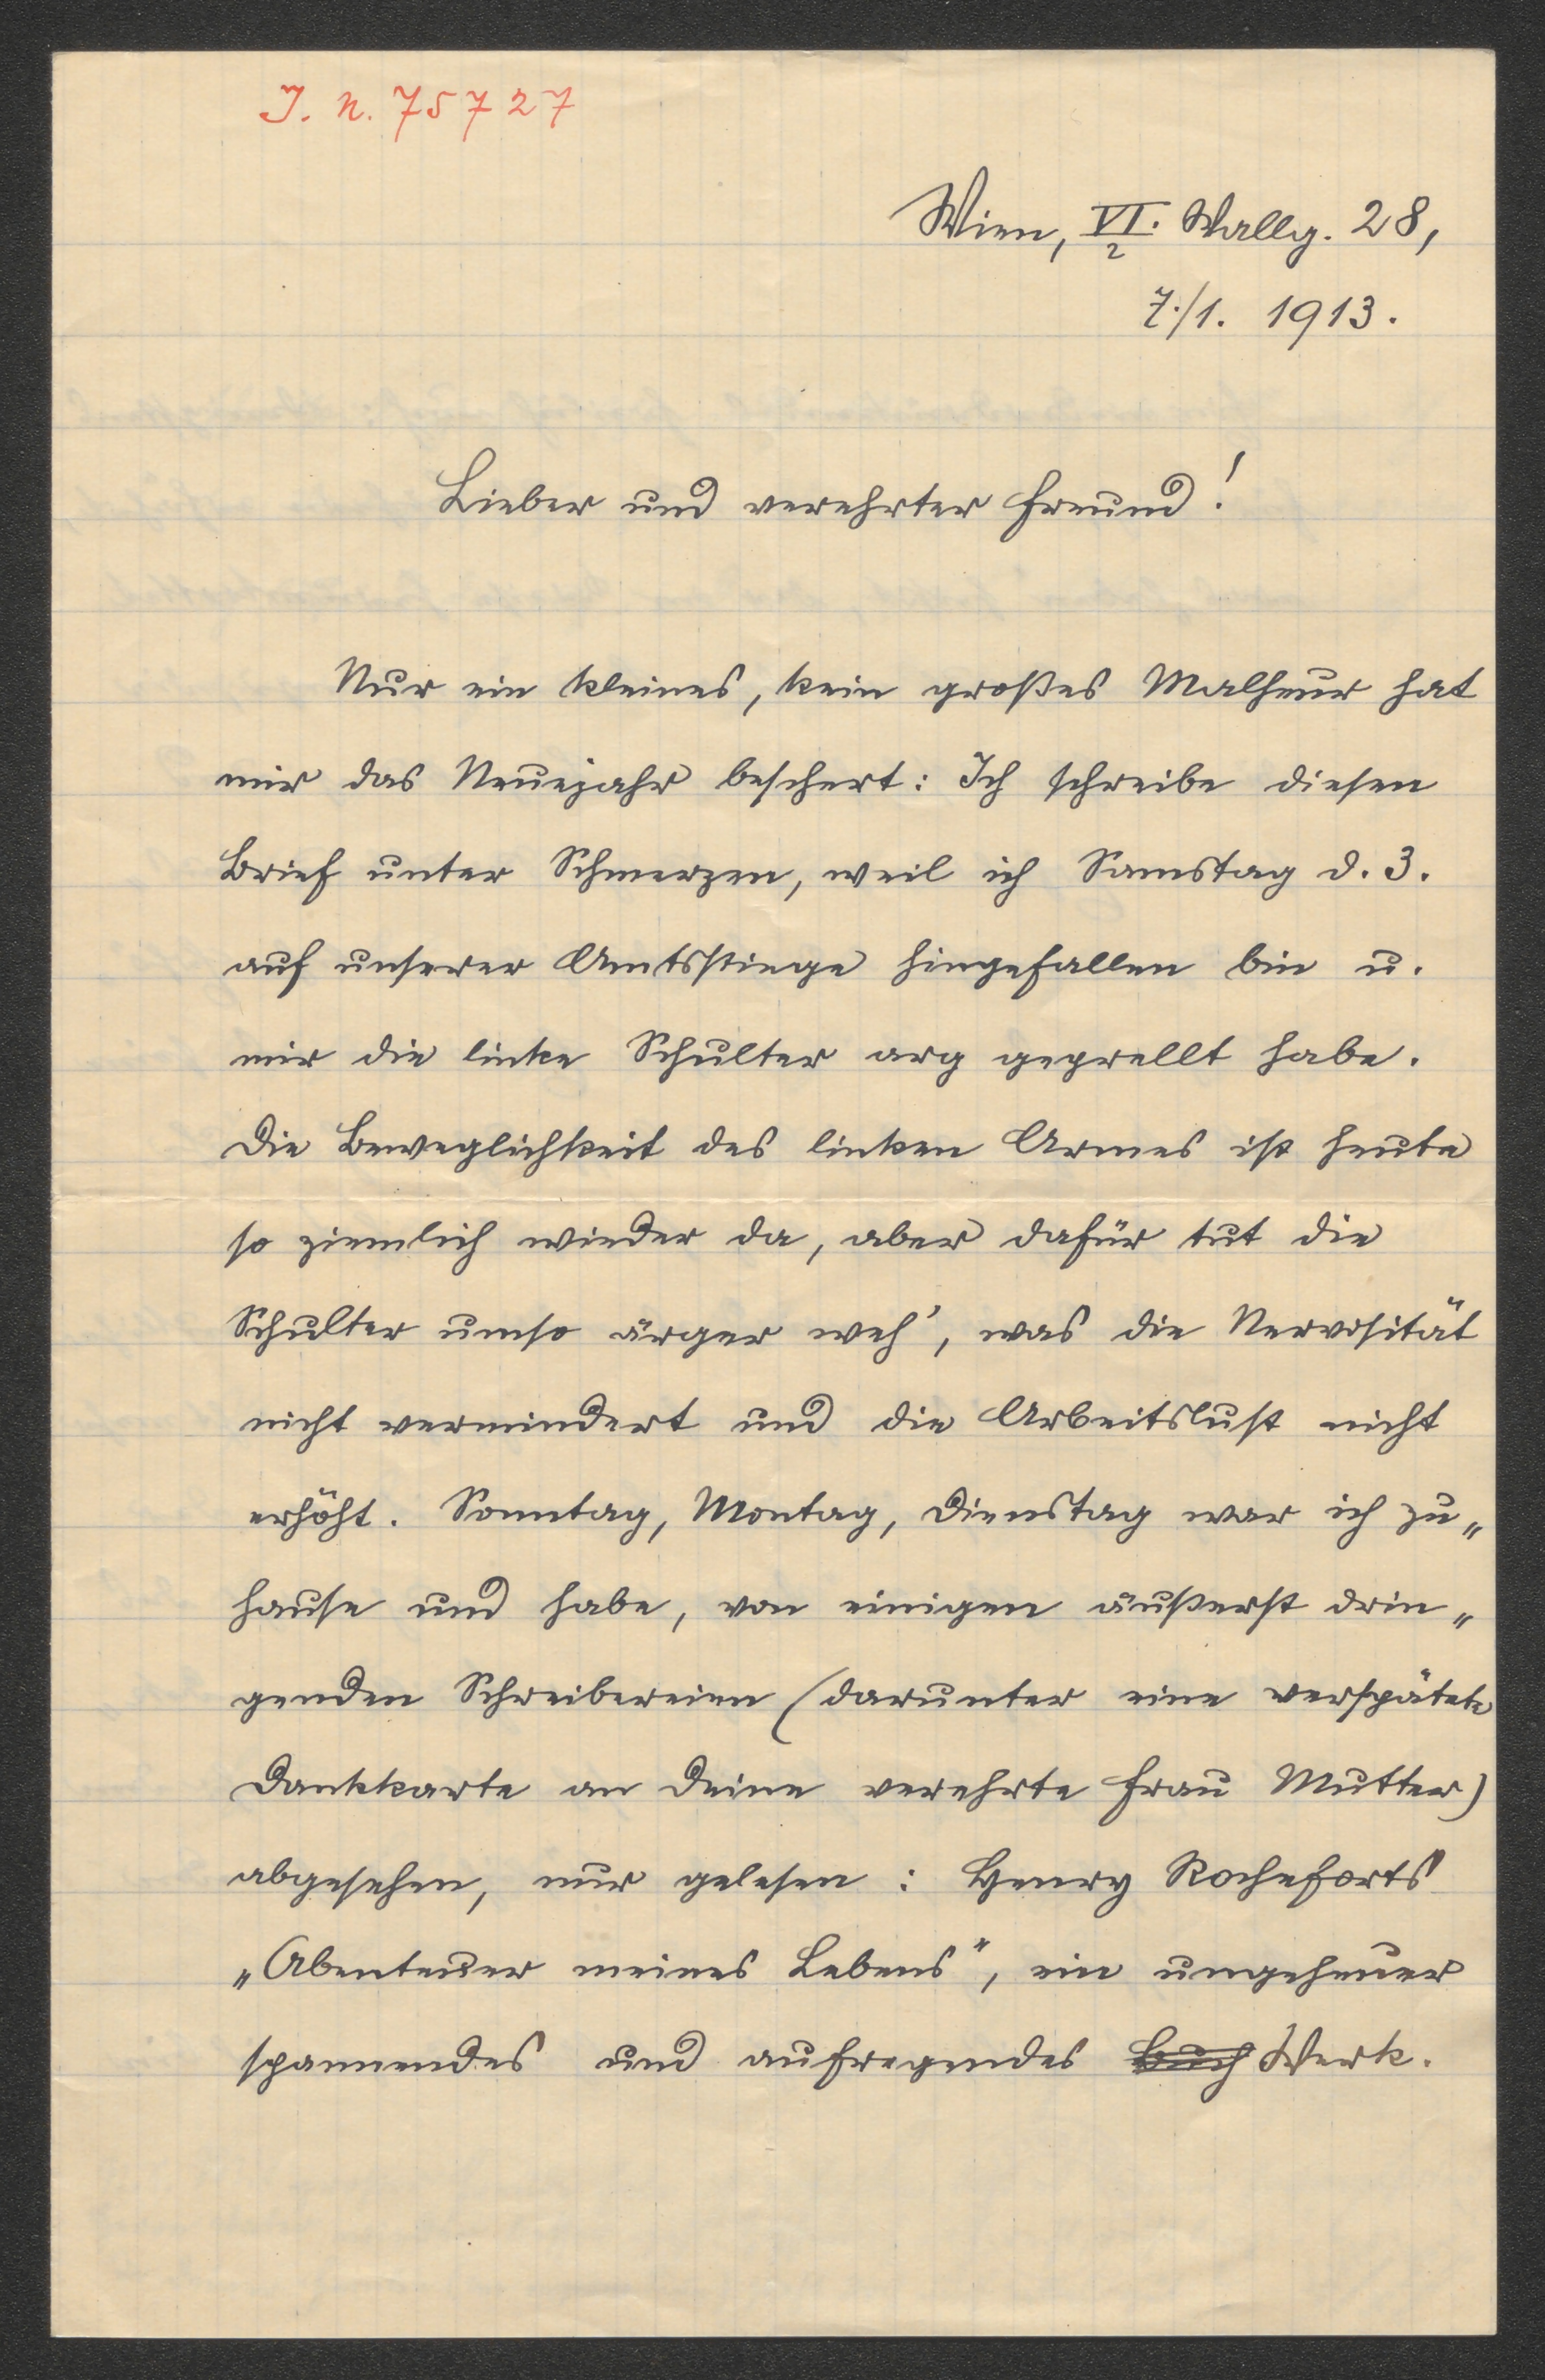 J. N. 75727
Wien, VI./2 Wallg. 28,
7./1. 1913.
Lieber und verehrter Freund!
Nur ein kleines, kein großes Malheur hat
mir das Neuejahr beschert: Ich schreibe diesen
Brief unter Schmerzen, weil ich Samstag d. 3.
auf unserer Amtsstiege hingefallen bin u.
mir die linke Schulter arg geprellt habe.
Die Beweglichkeit des linken Armes ist heute
so ziemlich wieder da, aber dafür tut die
Schulter umso ärger weh', was die Nervosität
nicht vermindert und die Arbeitslust nicht
erhöht. Sonntag, Montag, Dienstag war ich zu„
hause und habe, von einigen äußerst drin„
genden Schreibereien (darunter eine verspätete
Dankkarte an Deine verehrte Frau Mutter)
abgesehen, nur gelesen: Henry Rocheforts
„Abenteuer meines Lebens", ein ungeheuer
spannendes und aufregendes Buch Werk.